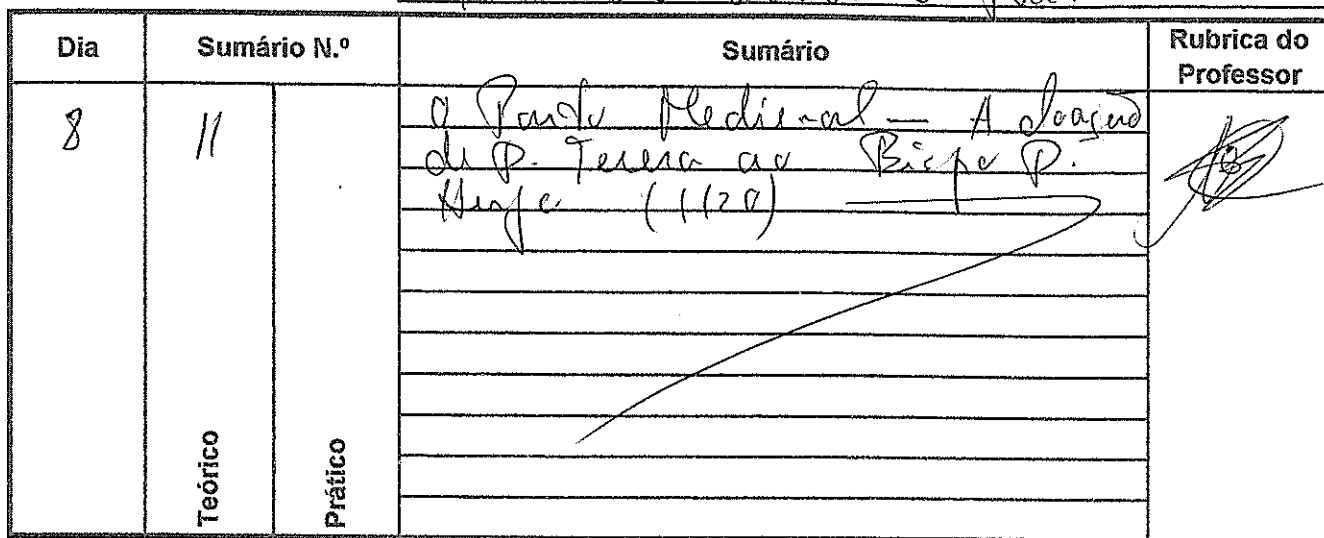 Dia Sumário N.º Sumário Rubrica do Professor
8 11 O Porto Medieval — A doação
de D. Teresa ao Bispo D.
Hugo (1120)
Teórico Prático